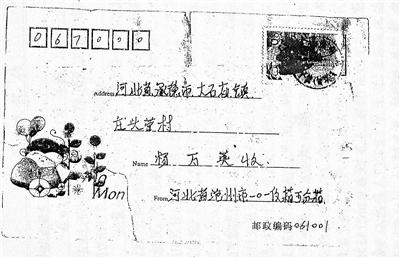 067000
Address 河北省承德市大石庙镇
庄头营村
Name 万英 收
Mon
From 河北省沧州市一〇一信箱
邮政编码061001